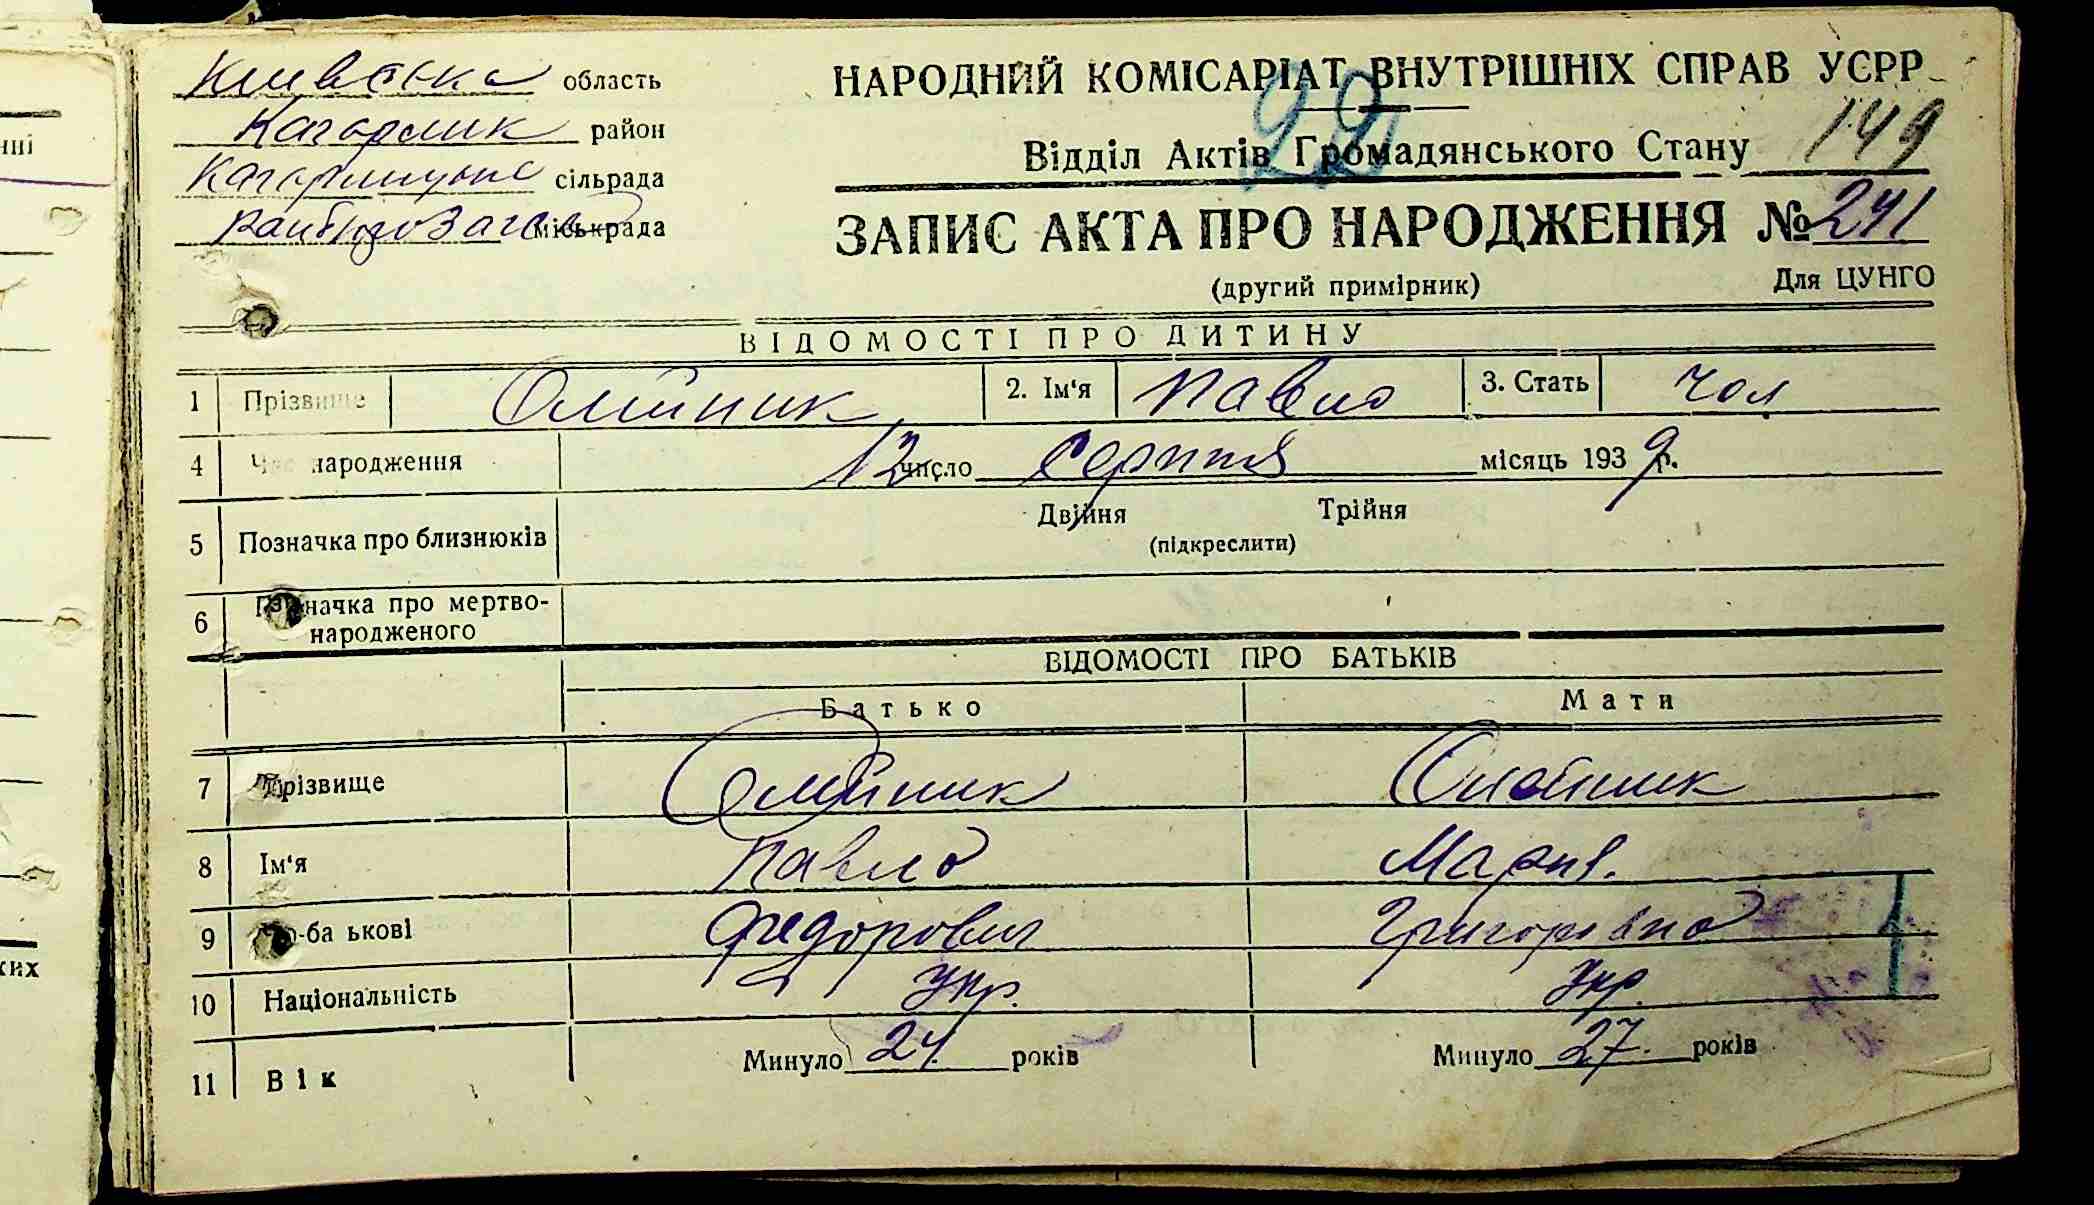 Київська область
Кагарлик район
Кагарлицька сільрада
Райбюро Загсу міськрада
НАРОДНИЙ КОМІСАРІАТ ВНУТРІШНІХ СПРАВ УСРР
22
Відділ Актів Громадянського Стану 149
ЗАПИС АКТА ПРО НАРОДЖЕННЯ № 241
(другий примірник) Для ЦУНГО
ВІДОМОСТІ ПРО ДИТИНУ
1 Прізвище Олійник 2. Ім‘я Павло 3. Стать Чол
4 Час народження 12 число Серпня місяць 1939 р.
5 Позначка про близнюків Двійня Трійня
(підкреслити)
6 Позначка про мертво-
народженого
ВІДОМОСТІ ПРО БАТЬКІВ
Батько Мати
7 Прізвище Олійник Олійник
8 Ім‘я Павло Мария.
9 По-ба ькові Федорович Григоровна
10 Національність Укр. Укр.
11 Вік Минуло 24 років Минуло 27 років
нні
ких